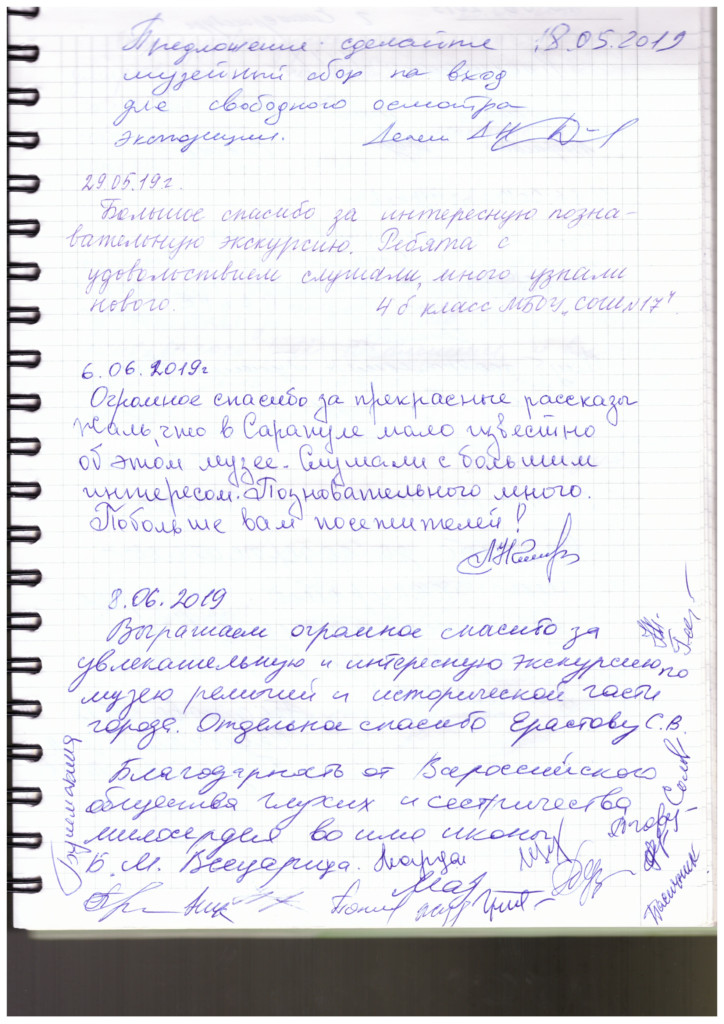 Предложение: сделайте 18.05.2019
музейный сбор на вход
для свободного осмотра
экспозиции.
29.05.19г.
Большое спасибо за интересную позна-
вательную экскурсию. Ребята с
удовольствием слушали, много узнали
нового. 4 б класс МБОУ „СОШ №17"
6.06.2019г
Огромное спасибо за прекрасные рассказы
Жаль, что в Сарапуле мало известно
об этом музее. Слушали с большим
интересом. Позновательного много.
Побольше вам посетителей!
8.06.2019
Выражаем огромное спасибо за
увлекательную и интересную экскурсию по
музею религий и исторической части
города. Отдельное спасибо Ерастову С.В.
Благодарность от Всероссийского
общества глухих и сестричества
милосердия во имя иконы
Б. М. Всецарица.